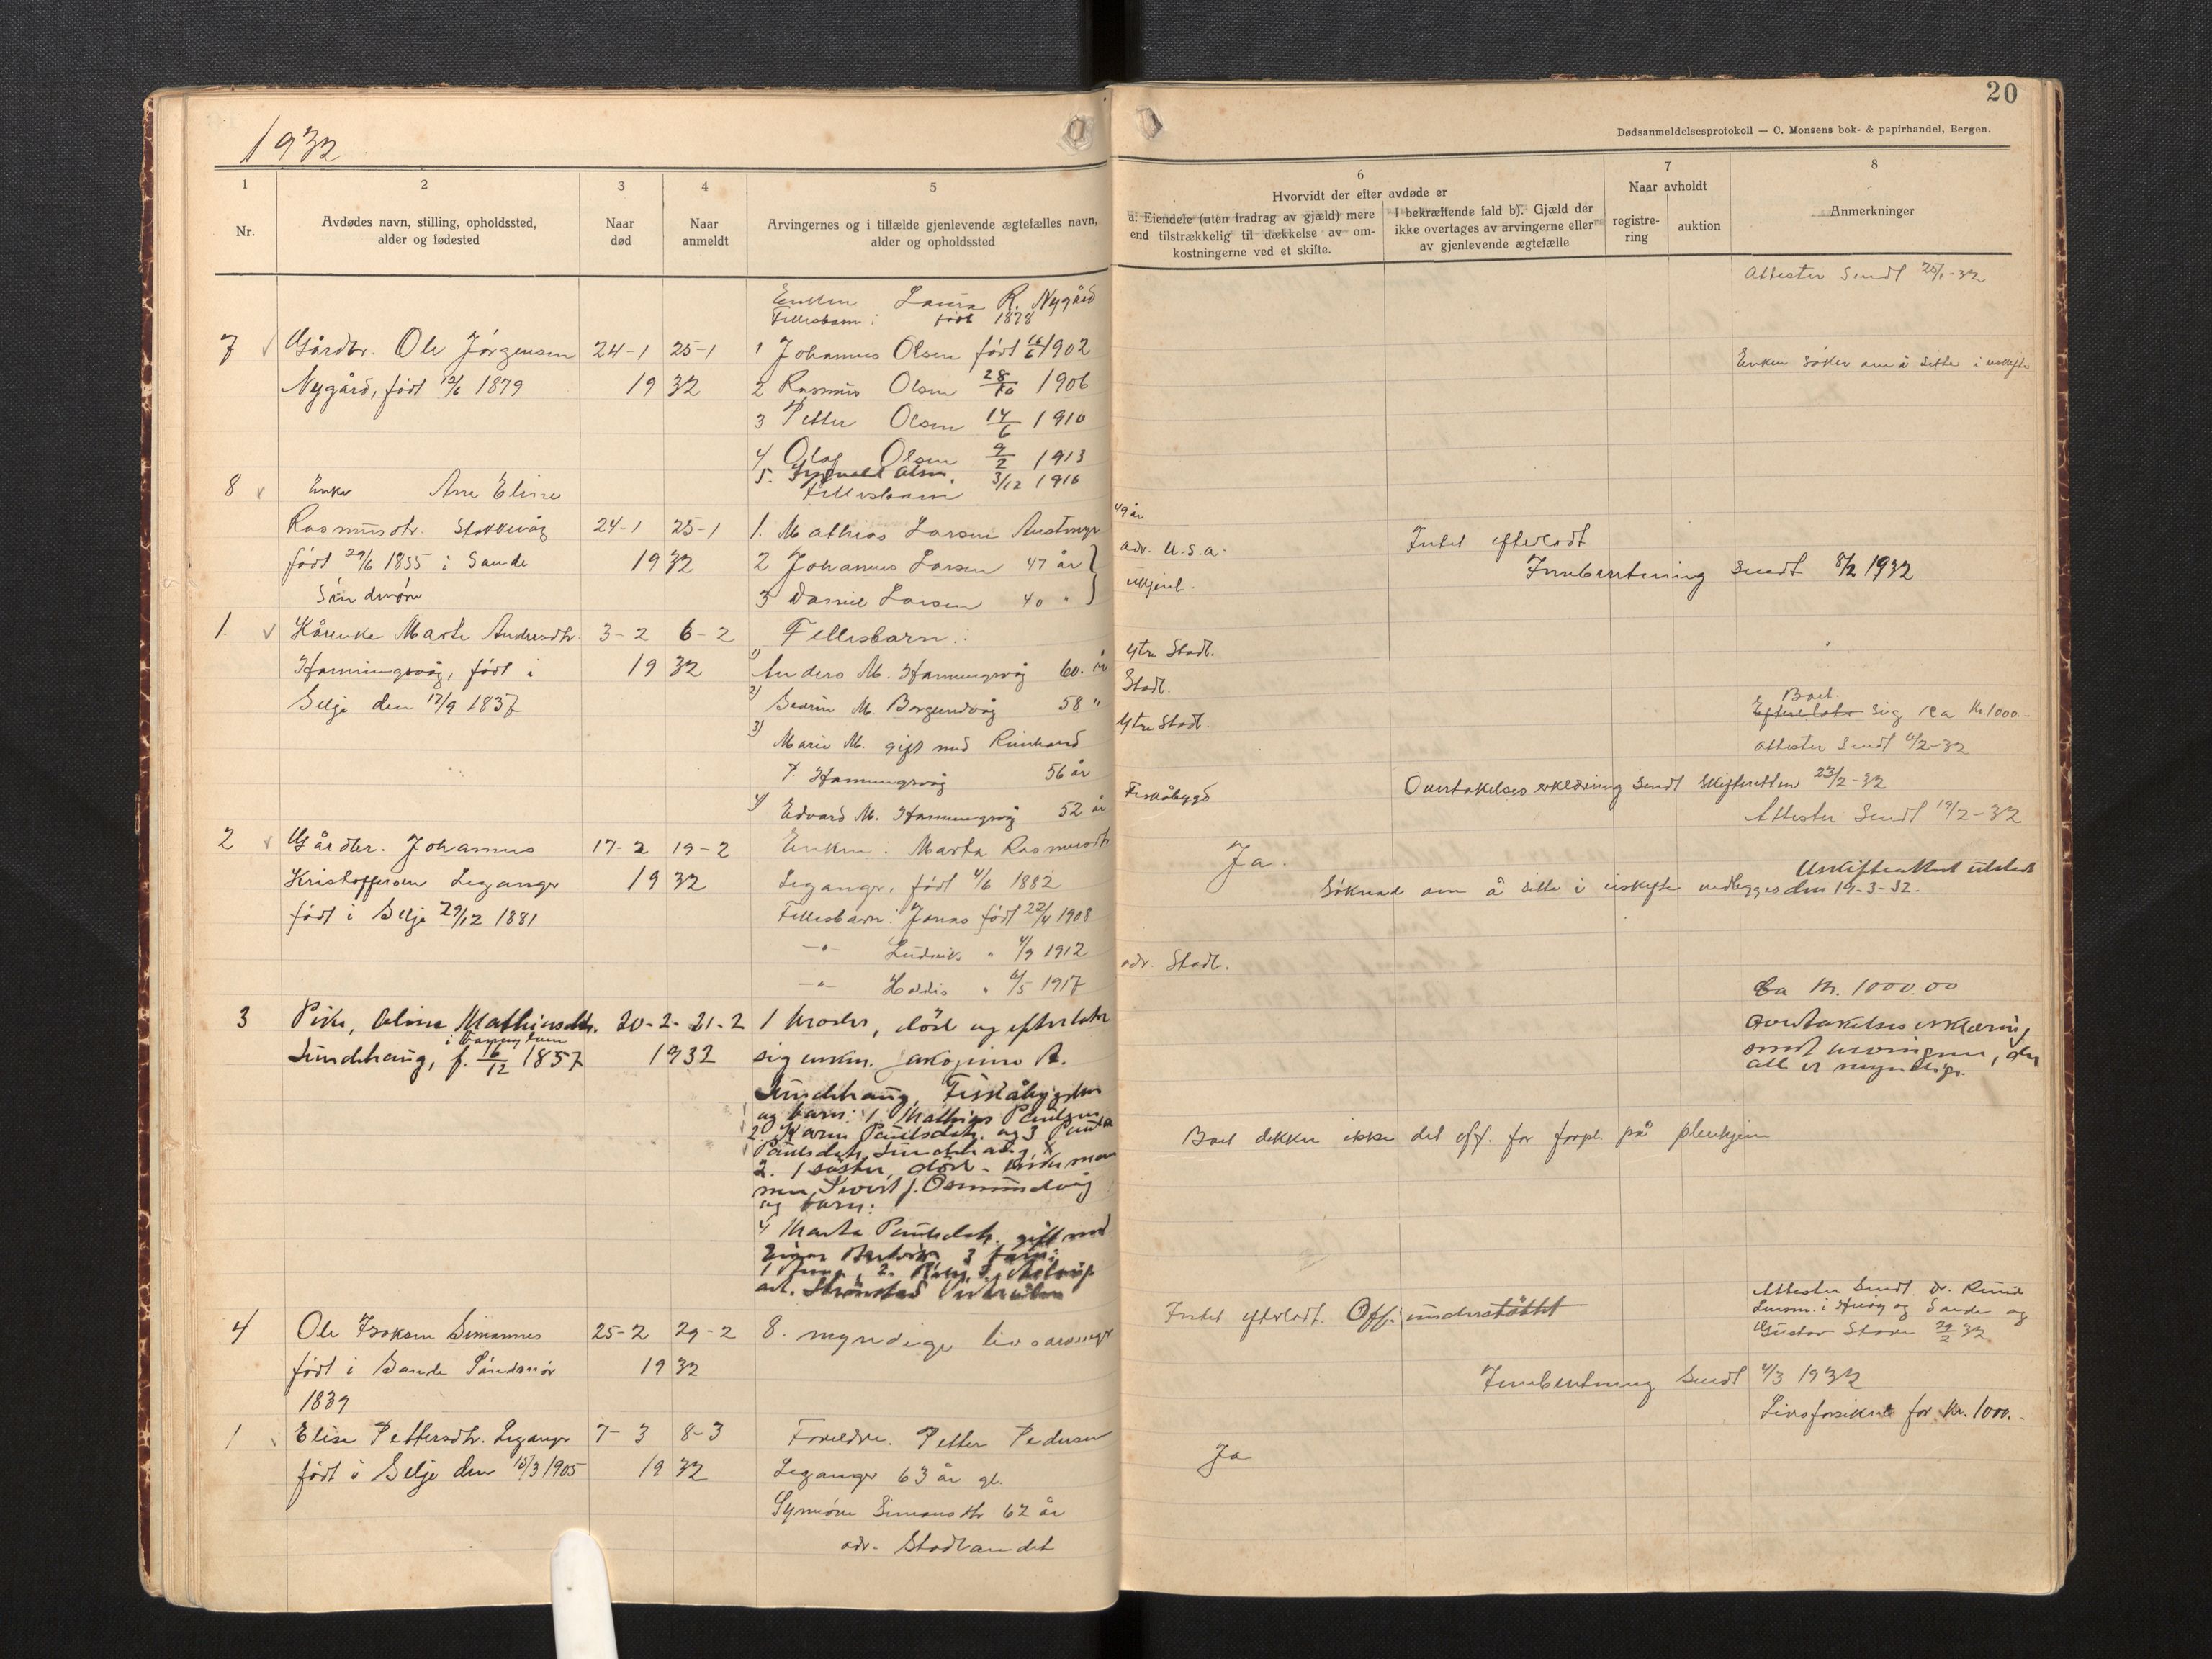 1932
20
Dødsanmeldelsesprotokoll — C. Monsens bok- & papirhandel, Bergen.
1
Nr.
2
Avdødes navn, stilling, opholdssted,
alder og fødested
3
Naar
død
4
Naar
anmeldt
5
Arvingernes og i tilfælde gjenlevende ægtefælles navn,
alder og opholdssted
6
Hvorvidt der efter avdøde er
a. Eiendele (uten fradrag av gjæld) mere
end tilstrækkelig til dækkelse av om-
kostningerne ved et skifte.
I bekræftende fald b). Gjæld der
ikke overtages av arvingerne eller
av gjenlevende ægtefælle
7
Naar avholdt
registre-
ring
auktion
8
Anmerkninger
Attester Sendt 25/1-32
Enken Laura R. Nygård
Fellesbarn: født 1878
7 Gårdbr. Ole Jørgensen 24-1 25-1 1 Johannes Olsen født 1902
Enken søker om å sitte i uskifte
Nygård, født 1879 19 32 2 Rasmus Olsen 28/10 1906
3 Petter Olsen 14/6 1910
4 Olaf Olsen 9/2 1913
5. Olsen. 3/12 1916
8 Enke Ane Eline Fellesbarn
Rasmusdtr. Stokkevåg 24-1 25-1 1. Mathias Larsen Austmyr 49 år
født 29/6 1855 i Sande 19 32 2 Johannes Larsen 47 år adr. U.S.a. Intet efterladt
Søndmøre 3 Daniel Larsen 40 " ukjent. Innberetning Sendt 8/2 1932
1. Kårenke Marte Andersdtr. 3-2 6-2 Fellesbarn:
Hamningsvåg, født i 19 32 1) Anders M. Hamningsvåg 60. år Ytre Stadt.
Selje den 17/9 1837 2) M. Borgundvåg 58 " Stadt.
Boet.
Efterlater sig ca Kr. 1000.-
3) Marie M. gift med Reinhard Ytre Stadt.
attester Sendt 6/2-32
P. Hamningsvåg 56 år
4) Edvard M. Hamningsvåg 52 år Fiskåbygd Overtakelseserklæring Sendt Skifteretten 23/2-32
Attester Sendt 19/2-32
2 Gårdbr. Johannes 17-2 19-2 Enken: Marta Rasmusdtr Ja.
Kristoffersen Leganger 19 32 Leganger, født 4/6 1882
Uskifteattest utstedt
Søknad om å sitte i uskifte vedlegges den 19-3-32.
født i Selje 29/12 1881 Fellesbarn: Jonas født 22/4 1908
-"- Ludvik " 4/9 1912 adr. Stadt.
-"- Hoddis " 6/5 1917
Ca Kr. 1000.00
3 Pike, Oline Mathiasdtr. 20-2- 21-2 1 broder, död og efterlater
overtakelseserklæring
Sundehaug, f. 16/12 1857 1932 sig enken. Jakopine A.
sendt arvingene, der
alle er myndige.
Sundehaug, Fiskåbygden
og barn: 1 Mathias Paulsen
2 Karen Paulsdtr. og 3
Paulsdtr. Sundehaug
Boet dekker ikke det off. for forpl. på pleiehjem
2. 1 søster, död - Enkeman
nen, Sivert J. Osmundvåg
og barn:
4 Marta Paulsdtr. gift med
3 barn:
4 Ole Isaksen Simannes 25-2 29-2 8. myndige livsarvinger Intet efterladt. Off. understöttet
Attester Sendt Dr. Runde
Lensm. i Herøy og Sande og
Gustav 29/2 32
født i Sande Söndmör 19 32
Innberetning Sendt 4/3 1932
1839
Livsforsikret for Kr. 1000.-
1 Elise Pettersdtr. Leganger 7-3 8-3 Foreldre. Petter Pedersen Ja
født i Selje den 15/3 1905 19 32 Leganger 63 år gl.
Synnöve Simonsdtr 62 år
adr. Stadlandet